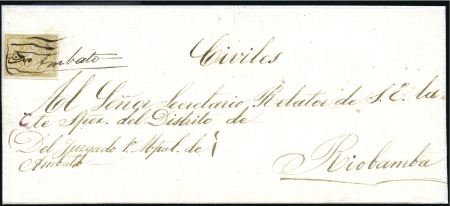 Ambato
Civiles
Al Señor Secretario Relator de S. E. la
Cte Spor. del Distrito de
Del Juzgado 1º Mpal. de
Ambato
Riobamba